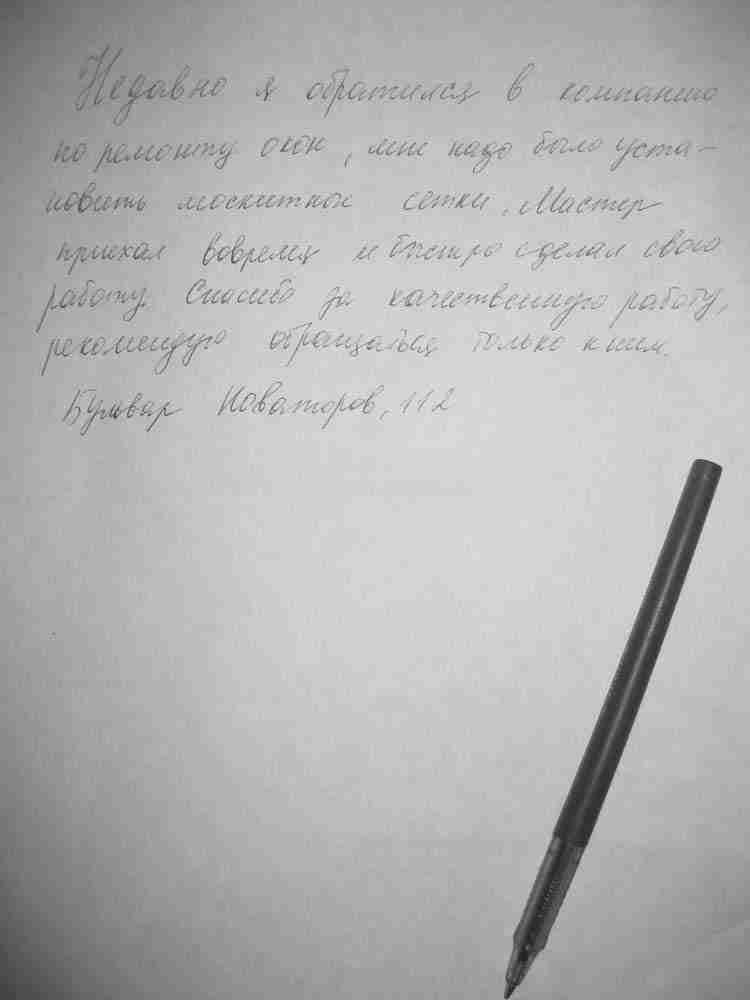 Недавно я обратился в компанию
по ремонту окон, мне надо было уста-
новить москитные сетки. Мастер
приехал вовремя и быстро сделал свою
работу. Спасибо за качественную работу,
рекомендую обращаться только к ним.
Бульвар Новаторов, 112